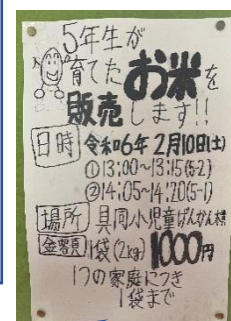 5年生が
育てたお米を
販売します!!
日時 令和6年 2月10日(土)
①13:00~13:15(5-2)
②14:05~14:20(5-1)
場所 具同小児童げんかん横
金額 1袋(2kg) 1000円
1つの家庭につき
1袋まで